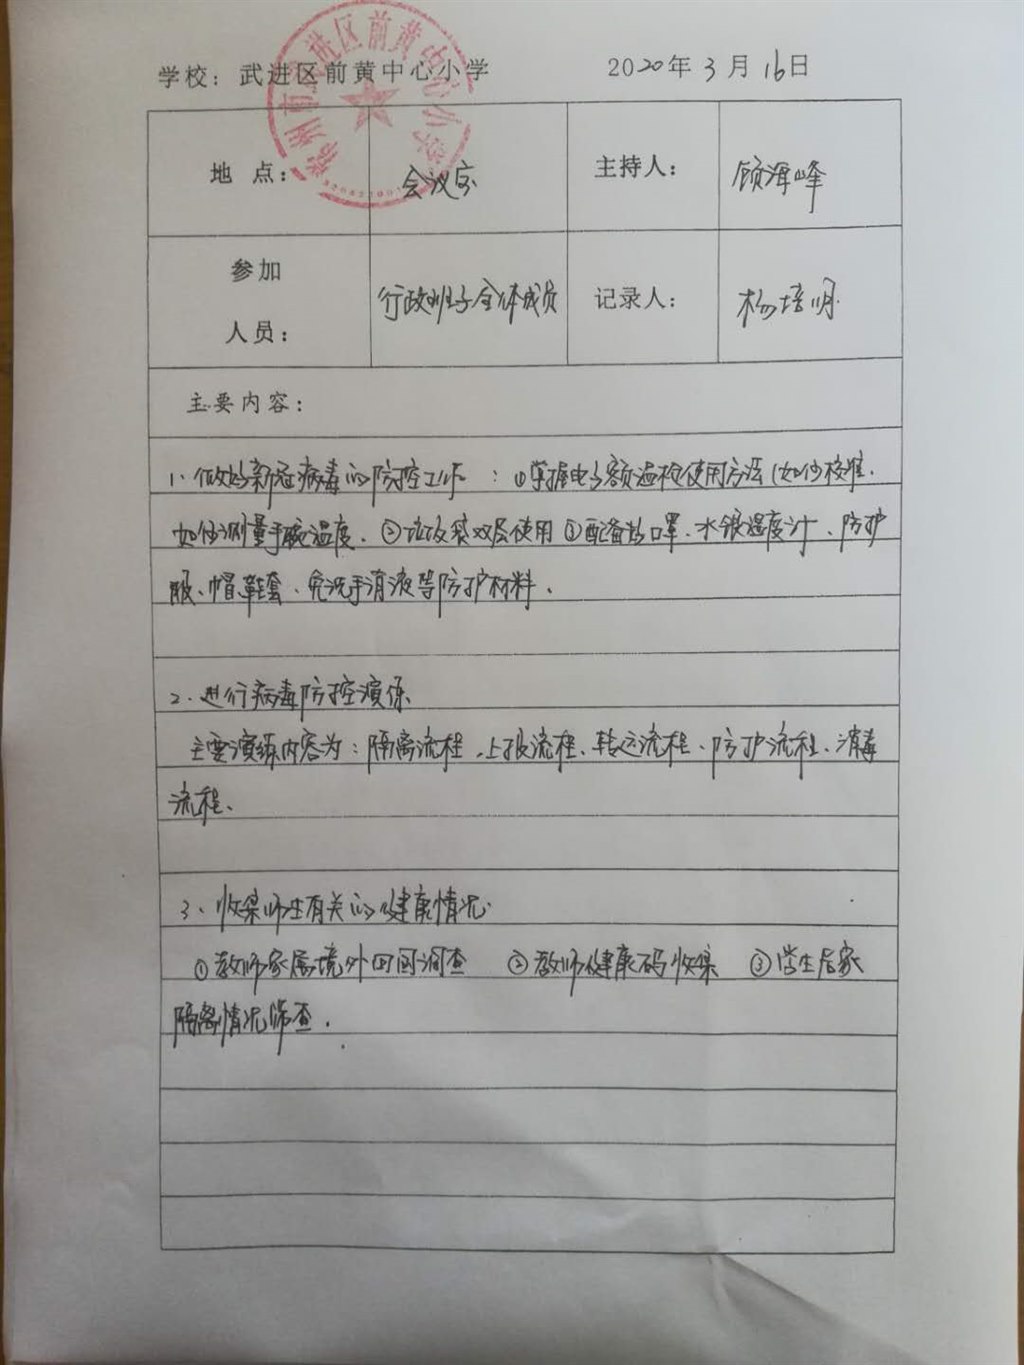 学校：武进区前黄中心小学 2020年3月16日
常州市武进区前黄中心小学
地 点： 会议室 主持人： 顾海峰
参加
人员： 行政班子全体成员 记录人： 杨培明
主要内容：
1、做好新冠病毒的防控工作 ：①掌握电子额温枪使用方法（如何校准.
如何测量手腕温度、②垃圾袋双层使用 ③配备好口罩、水银温度计、防护
服、帽、鞋套、免洗手消液等防护材料、
2、进行病毒防控演练
主要演练内容为：隔离流程、上报流程、转运流程、防护流程、消毒
流程、
3、收集师生有关的健康情况
①教师家属境外回国调查 ②教师健康码收集 ③学生居家
隔离情况筛查.